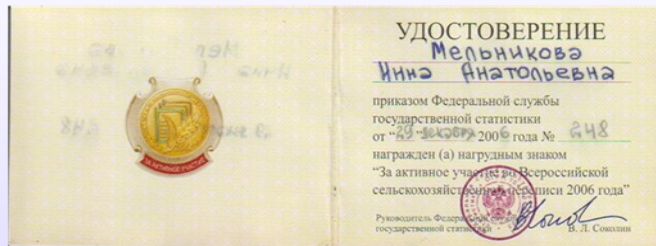 ЗА АКТИВНОЕ УЧАСТИЕ
УДОСТОВЕРЕНИЕ
Мельникова
Инна Анатольевна
приказом Федеральной службы
государственной статистики
от “29” декабря 2006 года № 248
награжден (а) нагрудным знаком
“За активное участие во Всероссийской
сельскохозяйственной переписи 2006 года”
Руководитель Федеральной службы
государственной статистики В. Л. Соколин